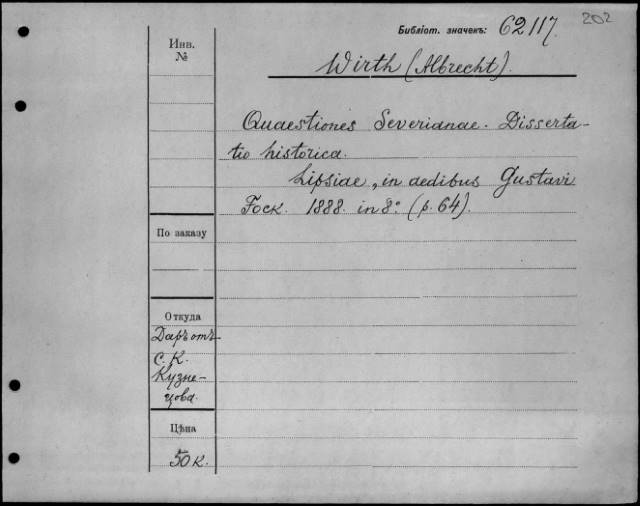 202
Библіот. значекъ: 62117.
Инв.
№
Wirth (Albrecht).
Quaestiones Severianae. Disserta-
tio historica.
Lipsiae, in aedibus Gustavi
Fock. 1888. in 8° (p. 64).
По заказу
Откуда
Даръ отъ
С. К.
Кузне-
цова.
Цѣна
50 к.